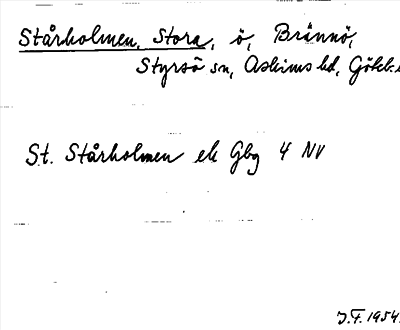 Stårholmen, Stora, ö, Brännö,
Styrsö sn, Askims hd, Göteb.
St. Stårholmen ek Gbg 4 NV
J.F. 1954.